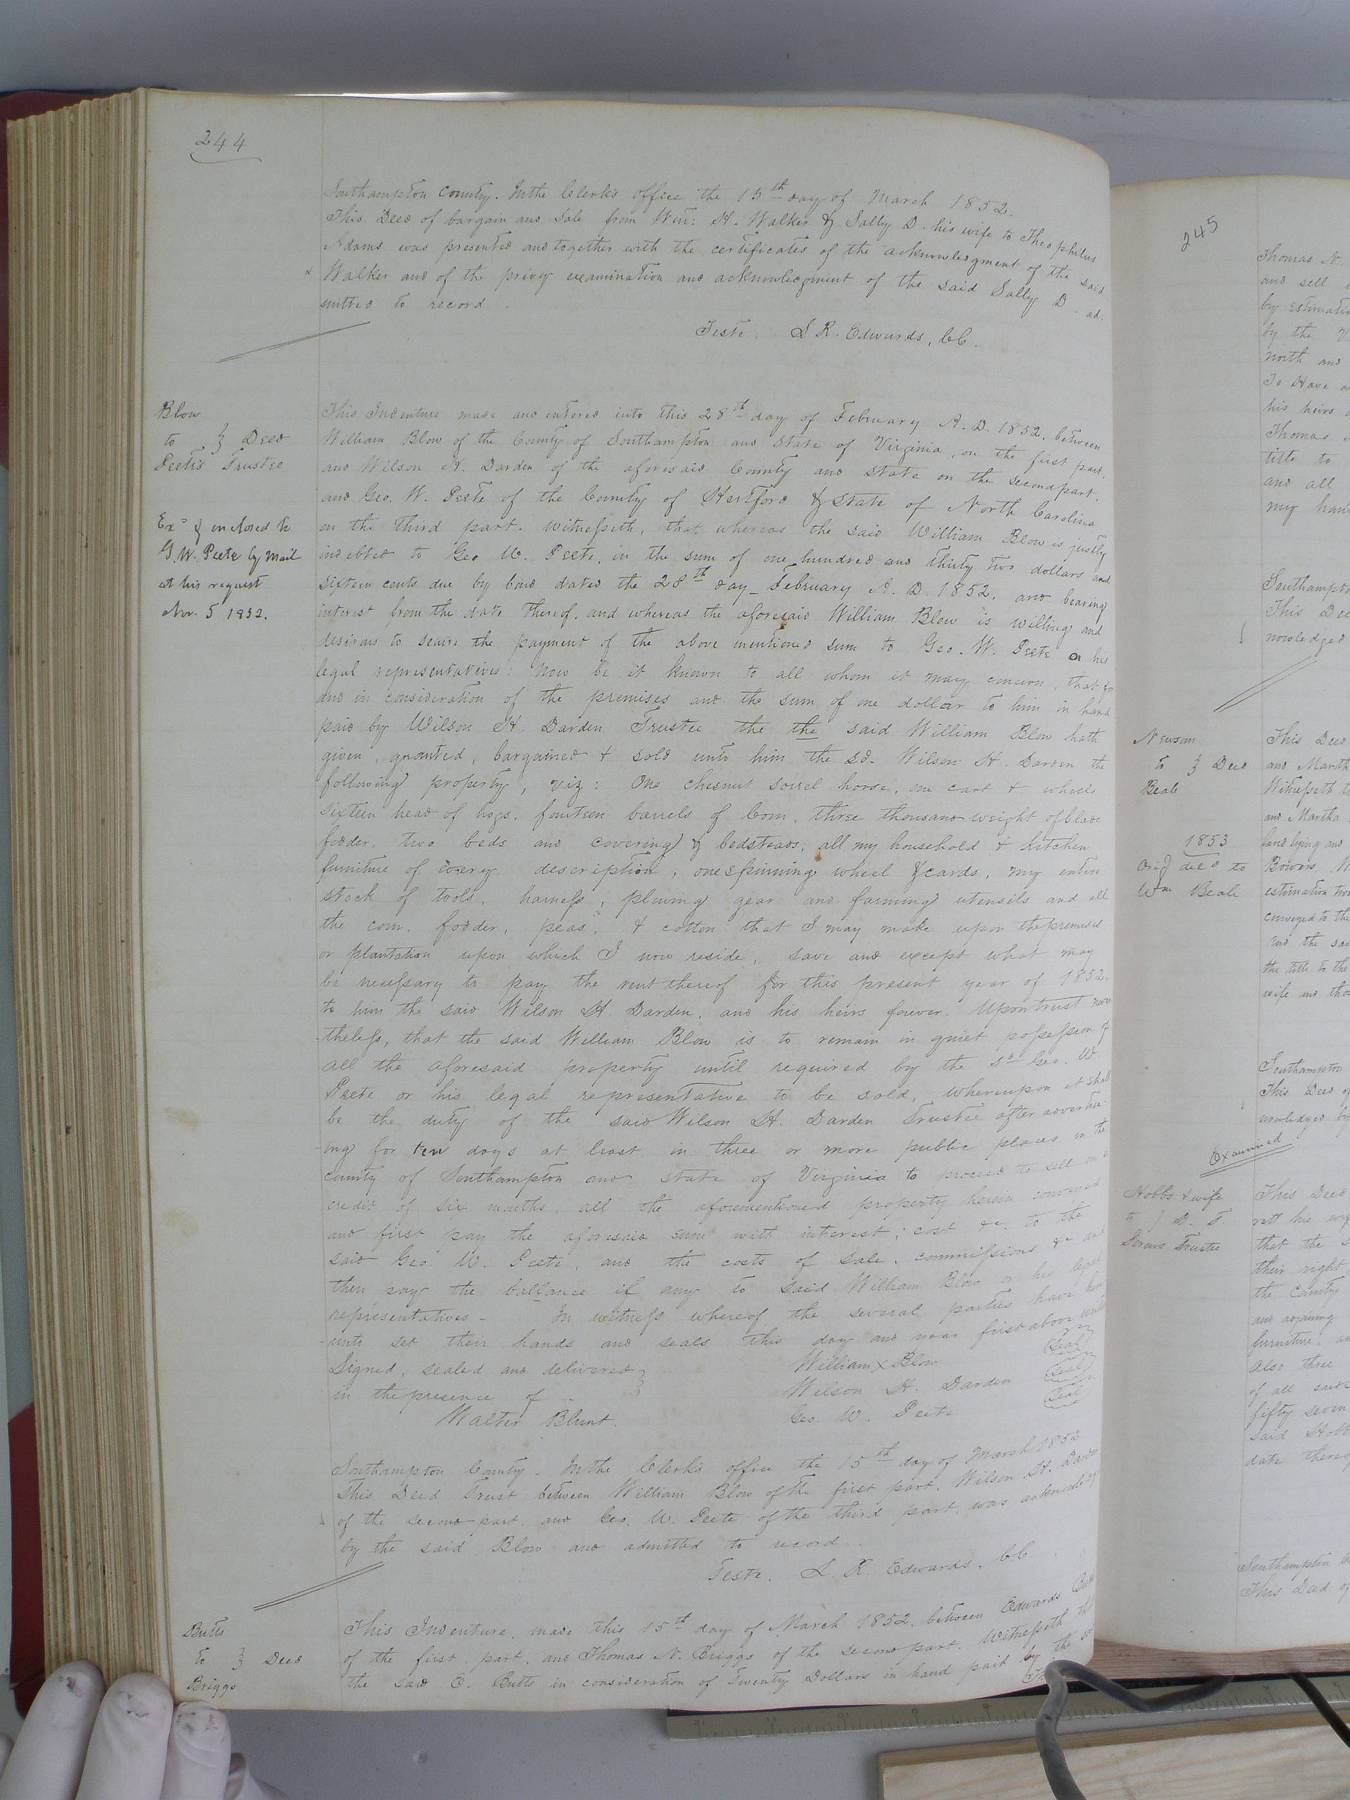 244
Southampton County. In the Clerk's office the 15th day of March 1852.
This Deed of bargain and Sale from Wm: H. Walker & Sally D. his wife to Theophilus
Adams was presented and together with the certificates of the acknowledgment of the said
Walker and of the privy examination and acknowledgment of the said Sally D. ad-
mitted to record.
Teste. L R. Edwards, CC.
Blow
to } Deed
Peete's Trustee
Exd & enclosed to
G. W. Peete by mail
at his request
Nov. 5 1852.
This Indenture made and entered into this 28th day of February A. D. 1852. between
William Blow of the County of Southampton and State of Virginia, on the first part,
and Wilson H. Darden of the aforesaid County and State on the second part,
and Geo. W. Peete of the County of Hertford & State of North Carolina
on the third part. witnesseth, that whereas the said William Blow is justly
indebted to Geo W. Peete, in the sum of one hundred and thirty two dollars and
sixteen cents due by bond dated the 28th day February A. D. 1852. and bearing
interest from the date thereof. and whereas the aforesaid William Blow is willing and
desirous to secure the payment of the above mentioned sum to Geo. W. Peete or his
legal representatives: Now be it known to all whom it may concern, that for
and in consideration of the premises and the sum of one dollar to him in hand
paid by Wilson H Darden Trustee the the said William Blow hath
given, granted, bargained & sold unto him the sd. Wilson H. Darden the
following property, viz: One chesnut soirel horse, one cart & wheels
sixteen head of hogs, fourteen barrels of Corn, three thousand weight of blade
fodder, two beds and covering & bedsteads, all my household & kitchen
furniture of every description, one spinning wheel & cards, my entire
stock of tools, harness, plowing gear and farming utensils and all
the corn, fodder, peas, & cotton that I may make upon the premises
or plantation upon which I now reside, save and except what may
be necessary to pay the rent thereof for this present year of 1852.
to him the said Wilson H Darden, and his heirs forever. Upon trust never
theless, that the said William Blow is to remain in quiet possession of
all the aforesaid property until required by the sd Geo. W
Peete or his legal representative to be sold, whereupon it shall
be the duty of the said Wilson H. Darden Trustee after advertis-
ing for ten days at least in three or more public places in the
county of Southampton and state of Virginia to proceed to sell on a
credit of six months, all the aforementioned property herein conveyed
and first pay the aforesaid sum with interest, cost &c. to the
said Geo. W. Peete, and the costs of sale, commissions &c and
then pay the ballance if any to said William Blow or his legal
representatives - In witness whereof the several parties have here
unto set their hands and seals this day and year first above written
Signed, sealed and delivered } William X Blow Seal
in the presence of Wilson H. Darden Seal
Walter Blunt. Geo. W. Peete Seal
Southampton County. In the Clerk's office the 15th day of March 1852
This Deed Trust between William Blow of the first part, Wilson H. Darden
of the second part, and Geo. W. Peete of the third part, was acknowledged
by the said Blow and admitted to record.
Teste. L R. Edwards. CC.
Butts
to } Deed
Briggs
This Indenture, made this 15th day of March 1852. between Edwards Butts
of the first part, and Thomas N. Briggs of the second part. Witnesseth that
the said E. Butts in consideration of Twenty Dollars in hand paid by the sd
Th
245
Thomas N.
and sell
by estimati
by the
north and
To Have a
his heirs
Thomas
title to
and all
my han
Southampto
This Dee
nowledged
Newsom
to } Deed
Beale
1853
Orig deld to
Wm Beale
This Deed
and Marth
Witnesseth t
and Martha
land lying and
Bowers
estimation
conveyed to the
And the sai
the title to the
wife and tho
Southampton
This Deed of
nowledged by
Examined
Hobbs & wife
to } D. T.
Trustee
This Deed
rett his wif
that the s
their right
the County
and adjoining
furniture, an
also three
of all said
fifty seven
said Hobb
date thereof
Southampton
This Deed of